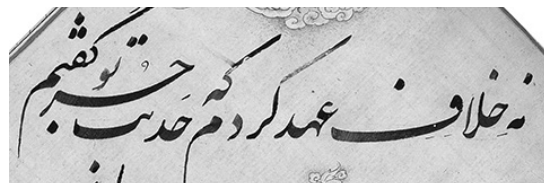 نه خلافِ عهد کردم که حدیث جز تو گفتم